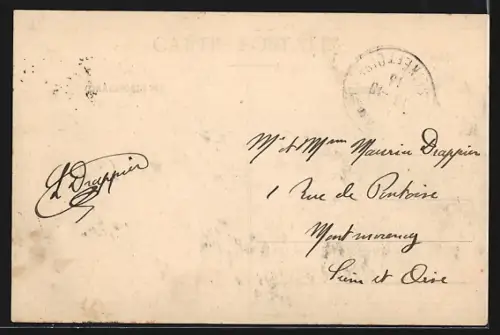 CARTE POSTALE
L Drappier
Mr et Mme Maurice Drappier
1 Rue de Pontoise
Montmorency
Seine et Oise